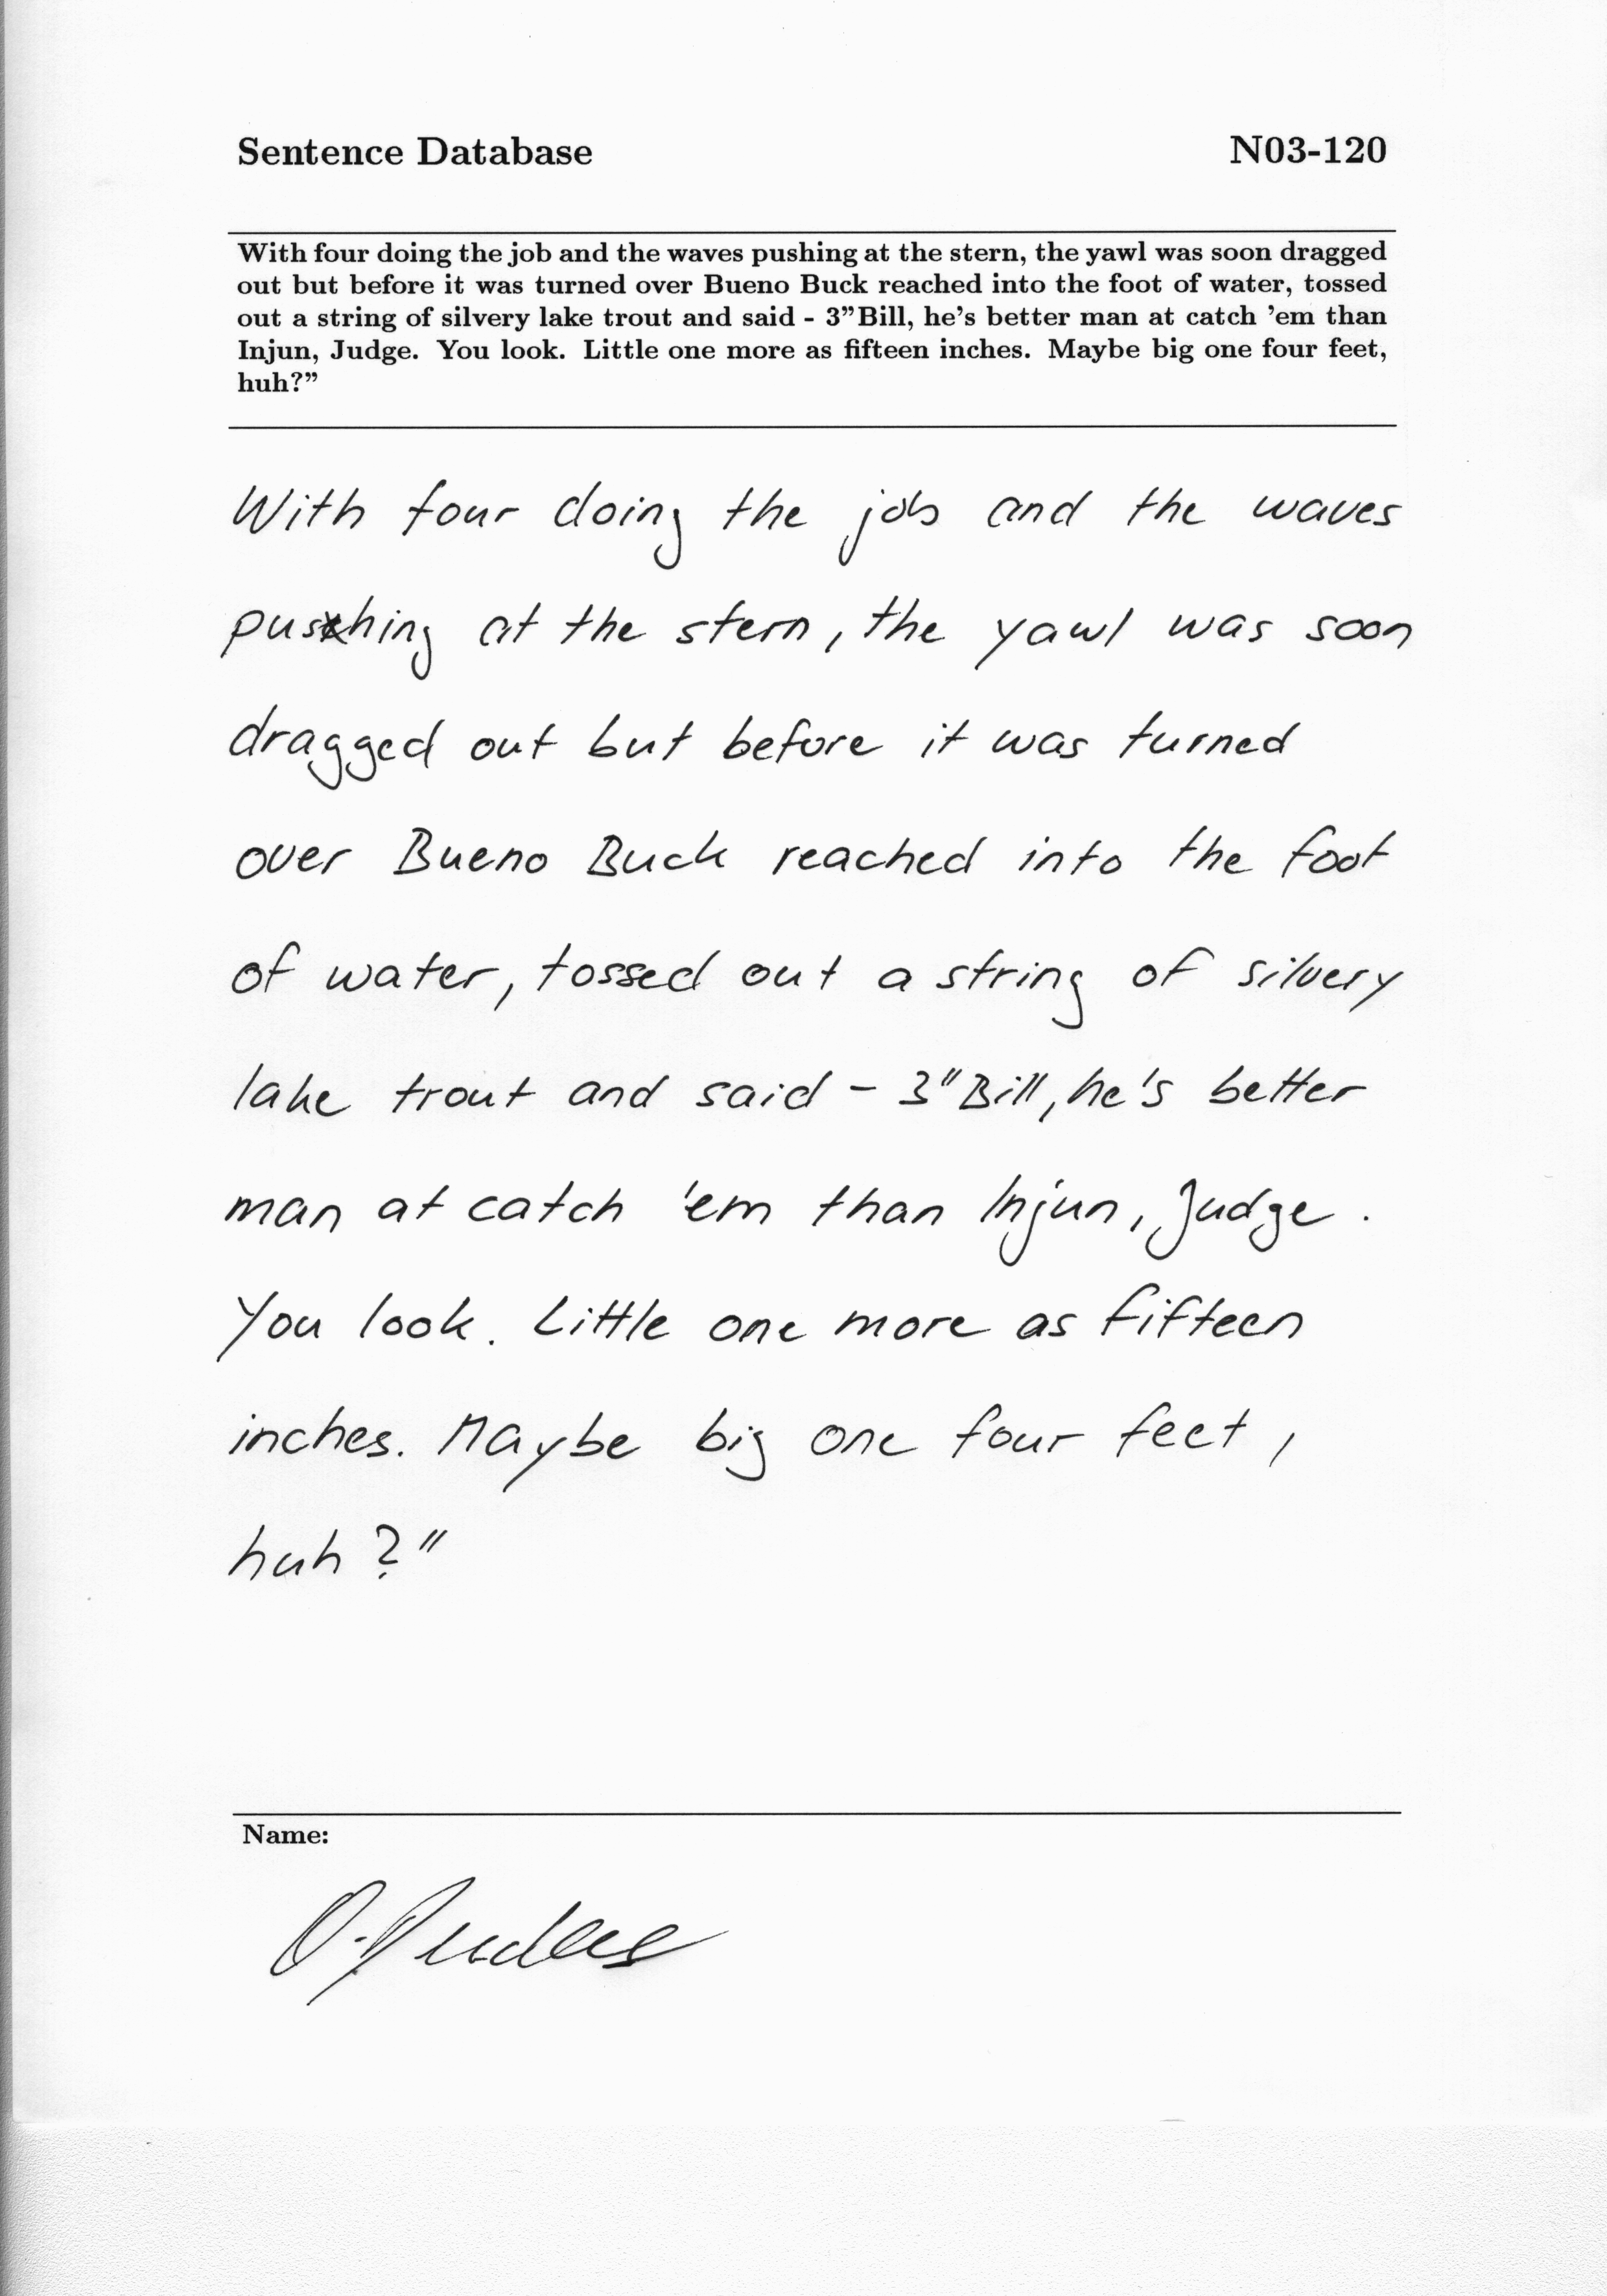 Sentence Database N03-120
With four doing the job and the waves pushing at the stern, the yawl was soon dragged
out but before it was turned over Bueno Buck reached into the foot of water, tossed
out a string of silvery lake trout and said - 3”Bill, he’s better man at catch ’em than
Injun, Judge. You look. Little one more as fifteen inches. Maybe big one four feet,
huh?”
With four doing the job and the waves
pushing at the stern, the yawl was soon
dragged out but before it was turned
over Bueno Buck reached into the foot
of water, tossed out a string of silvery
lake trout and said - 3"Bill, he's better
man at catch 'em than Injun, Judge.
You look. Little one more as fifteen
inches. Maybe big one four feet,
huh?"
Name: